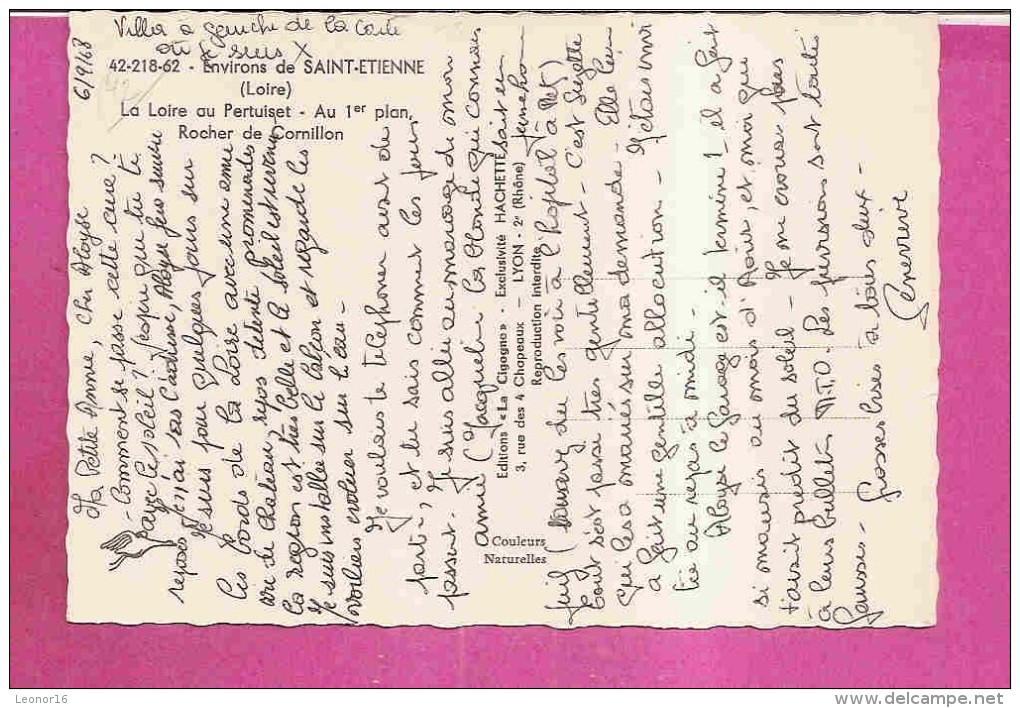 Villa à gauche de la carte
où je suis X
6/9/68
42-218-62 - Environs de SAINT-ETIENNE
(Loire)
La Loire au Pertuiset - Au 1er plan,
Rocher de Cornillon
Ma Petite Anne, cher Aloyse
- Comment se passe cette cure ?
payez le soleil ? J'espère que tu te
reposes
Je suis pour quelques jours sur
les bords de la Loire avec une amie
vie de chateau, repos détente promenades
la région est très belle et le soleil est revenu
Je suis installée sur le balcon et regarde les
voiliers évoluer sur l'eau -
Je voulais te téléphoner avant de
partir, et tu sais comment les jours
passent. Je suis allée au mariage de mon
amie (Jacqueline la blonde qui
à l'hopital à
tout s'est passé très gentillement - c'est
qui les a mariés sur ma demande - Elle leur
a fait une gentille allocution - J'étais invi
tée au repas à midi -
Aloyse le garage est-il terminé - il a fait
si mauvais au mois d'Août, et moi qui
t'avait prédit du soleil - Je ne crois plus
à leurs bulletins Météo. Les prévisions sont toutes
fausses - Grosses bises à tous deux -
Geneviève
Editions «La Cigogne» - Exclusivité HACHETTE
3, rue des 4 Chapeaux - LYON - 2e (Rhône)
Reproduction interdite
Couleurs
Naturelles
Leonor16
www.delcampe.net